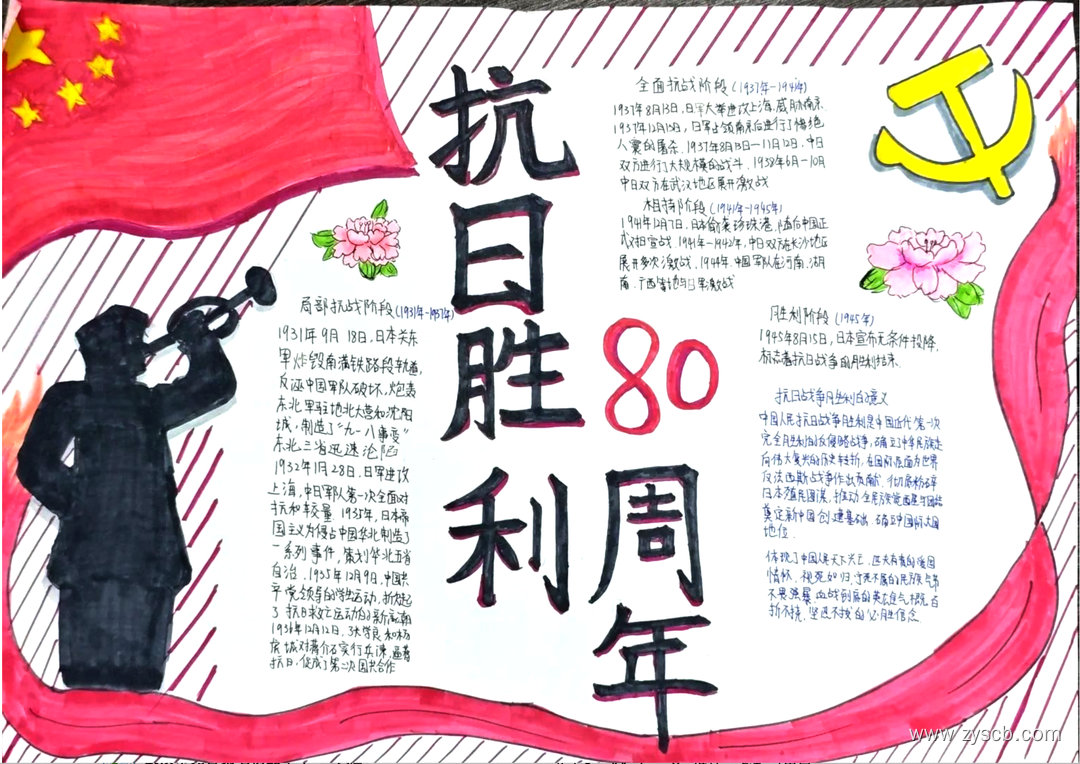 抗日胜利
80
周年
局部抗战阶段(1931年-1937年)
1931年9月18日,日本关东
军炸毁南满铁路段轨道,
反诬中国军队破坏,炮轰
东北军驻地北大营和沈阳
城,制造了“九一八事变”
东北三省迅速沦陷
1932年1月28日,日军进攻
上海,中日军队第一次全面对
抗和较量.1935年,日本帝
国主义为侵占中国华北制造了
一系列事件,策划华北五省
自治.1935年12月9日,中国共
产党领导的学生运动,掀起
了抗日救亡运动的新高潮
1936年12月12日,张学良和杨
虎城对蒋介石实行兵谏,逼蒋
抗日,促成了第二次国共合作
全面抗战阶段(1937年-1941年)
1937年8月13日,日军大举进攻上海,威胁南京.
1937年12月13日,日军占领南京后进行了惨绝
人寰的屠杀.1937年8月13日—11月12日,中日
双方进行了大规模的战斗.1938年6月-10月
中日双方在武汉地区展开激战
相持阶段(1941年-1945年)
1941年12月7日,日本偷袭珍珠港,随后中国正
式对日宣战.1941年-1942年,中日双方在长沙地区
展开多次激战.1944年,中国军队在河南、湖
南、广西等地与日军激战
胜利阶段(1945年)
1945年8月15日,日本宣布无条件投降,
标志着抗日战争的胜利结束.
抗日战争胜利的意义
中国人民抗日战争胜利是中国近代第一次
完全胜利的反侵略战争,确立了中华民族走
向伟大复兴的历史转折,在国际层面为世界
反法西斯战争作出贡献,彻底粉碎
日本殖民图谋,推动全民族觉醒与团结
奠定新中国创建基础,确立中国际大国
地位.
体现了中国人民天下兴亡、匹夫有责的爱国
情怀,视死如归、宁死不屈的民族气节
不畏强暴、血战到底的英雄气概,百
折不挠、坚忍不拔的必胜信念.
www.zyscb.com